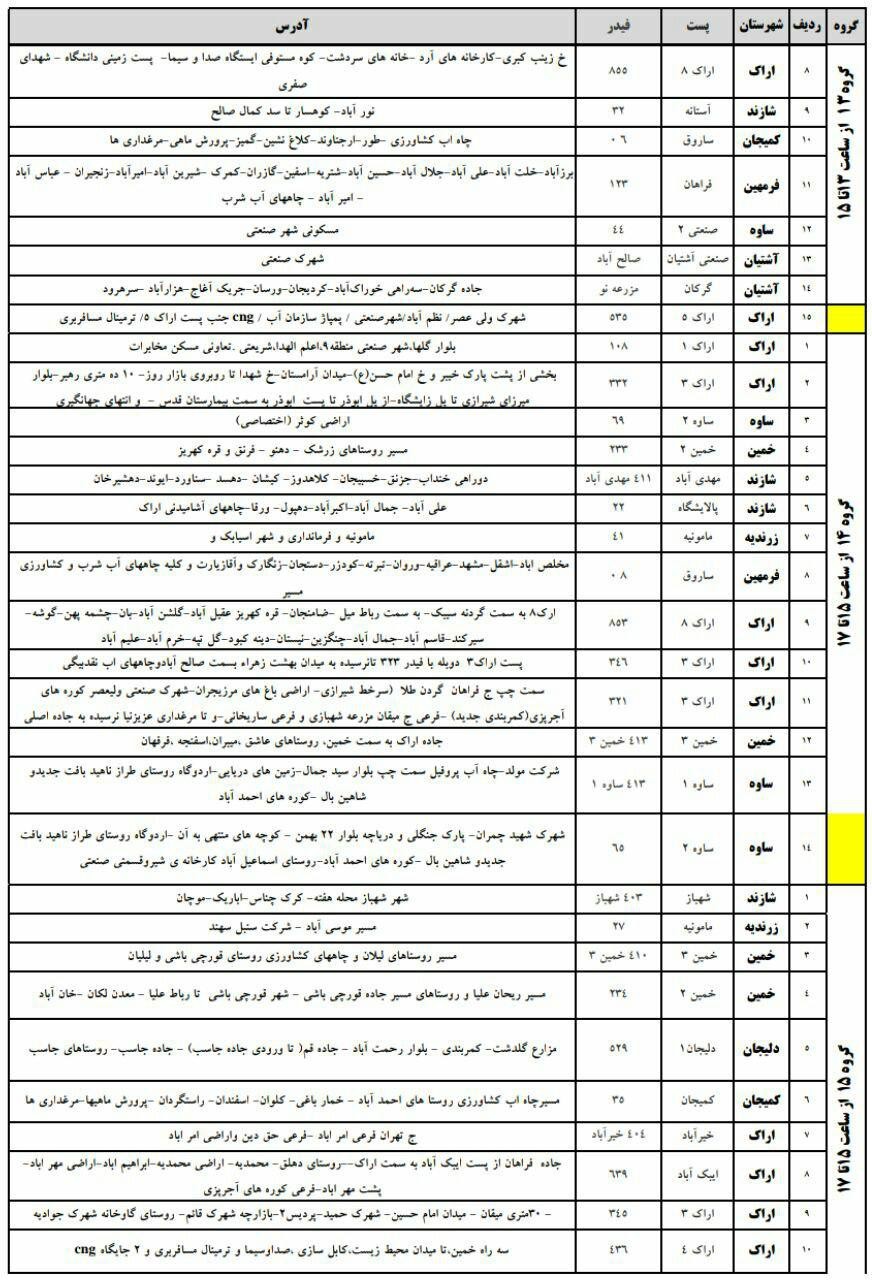 گروه ردیف شهرستان پست فیدر آدرس
گروه ۱۳ از ساعت ۱۳تا ۱۵
۸ اراک اراک ۸ ۸۵۵ خ زینب کبری-کارخانه های آرد -خانه های سردشت- کوه مستوفی ایستگاه صدا و سیما- پست زمینی دانشگاه - شهدای
صفری
۹ شازند آستانه ۳۲ نور آباد- کوهسار تا سد کمال صالح
۱۰ کمیجان ساروق ۰۶ چاه اب کشاورزی -طور-ارجناوند-کلاغ نشین-گمیز-پرورش ماهی-مرغداری ها
۱۱ فرمهین فراهان ۱۲۳ برزآباد-خلت آباد-علی آباد-جلال آباد-حسین آباد-شتریه-اسفین-گازران-کمرک -شیرین آباد-امیرآباد-زنجیران - عباس آباد
- امیر آباد - چاههای آب شرب
۱۲ ساوه صنعتی ۲ ٤٤ مسکونی شهر صنعتی
۱۳ آشتیان صنعتی آشتیان صالح آباد شهرک صنعتی
۱٤ آشتیان گرکان مزرعه نو جاده گرکان-سه‌راهی خوراک‌آباد-کردیجان-ورسان-جریک آغاج-هزارآباد -سرهرود
۱۵ اراک اراک ۵ ۵۳۵ شهرک ولی عصر/ نظم آباد/شهرصنعتی / پمپاژ سازمان آب / cng جنب پست اراک ۵/ ترمینال مسافربری
گروه ۱۴ از ساعت ۱۵تا ۱۷
۱ اراک اراک ۱ ۱۰۸ بلوار گلها،شهر صنعتی منطقه۹،اعلم الهدا،شریعتی .تعاونی مسکن مخابرات
۲ اراک اراک ۳ ۳۳۲ بخشی از پشت پارک خیبر و خ امام حسن(ع)-میدان آرامستان-خ شهدا تا روبروی بازار روز- ۱۰ ده متری رهبر-بلوار
میرزای شیرازی تا پل زایشگاه-از پل ابوذر تا پست ابوذر به سمت بیمارستان قدس - و انتهای جهانگیری
۳ ساوه ساوه ۲ ۶۹ اراضی کوثر (اختصاصی)
٤ خمین خمین ۲ ۲۳۳ مسیر روستاهای زرشک - دهنو - فرنق و قره کهریز
۵ شازند مهدی آباد ٤۱۱ مهدی آباد دوراهی خنداب-جزنق-خسبیجان- کلاهدوز- کیشان -دهسد -سناورد-ایوند-دهشیرخان
۶ شازند پالایشگاه ۲۲ علی آباد- جمال آباد-اکبرآباد-دهپول- ورقا-چاههای آشامیدنی اراک
۷ زرندیه مامونیه ٤۱ مامونیه و فرمانداری و شهر اسیابک و
۸ فرمهین ساروق ۰۸ مخلص اباد-اشقل-مشهد-عراقیه-وروان-تبرته-کودزر-دستجان-زنگارک وآقازیارت و کلیه چاههای آب شرب و کشاورزی
مسیر
۹ اراک اراک ۸ ۸۵۳ ارک۸ به سمت گردنه سیبک- به سمت رباط میل -ضامنجان- قره کهریز عقیل آباد-گلشن آباد-بان-چشمه پهن-گوشه-
سیرکند-قاسم آباد-جمال آباد-چنگزین-نیستان-دینه کبود-گل تپه-خرم آباد-علیم آباد
۱۰ اراک اراک ۳ ۳٤۶ پست اراک۳ دوبله با فیدر ۳۲۳ تانرسیده به میدان بهشت زهراء بسمت صالح آبادوچاههای اب نقدبیگی
۱۱ اراک اراک ۳ ۳۲۱ سمت چپ ج فراهان گردن طلا (سرخط شیرازی- اراضی باغ های مرزیجران-شهرک صنعتی ولیعصر کوره های
آجرپزی(کمربندی جدید) -فرعی ج میقان مزرعه شهبازی و فرعی ساریخانی-و تا مرغداری عزیزنیا نرسیده به جاده اصلی
۱۲ خمین خمین ۳ ٤۱۳ خمین ۳ جاده اراک به سمت خمین، روستاهای عاشق ،میبران،اسفنجه ،فرقهان
۱۳ ساوه ساوه ۱ ٤۱۳ ساوه ۱ شرکت مولد-چاه آب پروفیل سمت چپ بلوار سید جمال-زمین های دریایی-اردوگاه روستای طراز ناهید بافت جدیدو
شاهین بال -کوره های احمد آباد
۱٤ ساوه ساوه ۲ ۶۵ شهرک شهید چمران- پارک جنگلی و دریاچه بلوار ۲۲ بهمن - کوچه های منتهی به آن -اردوگاه روستای طراز ناهید بافت
جدیدو شاهین بال -کوره های احمد آباد-روستای اسماعیل آباد کارخانه ی شیروقسمتی صنعتی
گروه ۱۵ از ساعت ۱۵تا ۱۷
۱ شازند شهباز ٤۰۳ شهباز شهر شهباز محله هفته- کرک چناس-اباریک-موچان
۲ زرندیه مامونیه ۲۷ مسیر موسی آباد - شرکت سنبل سهند
۳ خمین خمین ۳ ٤۱۰ خمین ۳ مسیر روستاهای لیلان و چاههای کشاورزی روستای قورچی باشی و لیلیان
٤ خمین خمین ۲ ۲۳٤ مسیر ریحان علیا و روستاهای مسیر جاده قورچی باشی - شهر قورچی باشی تا رباط علیا - معدن لکان -خان آباد
۵ دلیجان دلیجان۱ ۵۲۹ مزارع گلدشت- کمربندی - بلوار رحمت آباد - جاده قم( تا ورودی جاده جاسب) - جاده جاسب- روستاهای جاسب
۶ کمیجان کمیجان ۳۵ مسیرچاه اب کشاورزی روستا های احمد آباد - خمار باغی- کلوان- اسفندان- راستگردان -پرورش ماهیها-مرغداری ها
۷ اراک خیرآباد ٤۰٤ خیرآباد ج تهران فرعی امر اباد -فرعی حق دین واراضی امر اباد
۸ اراک ایبک آباد ۶۳۹ جاده فراهان از پست ایبک آباد به سمت اراک--روستای دهلق- محمدیه- اراضی محمدیه-ابراهیم اباد-اراضی مهر اباد-
پشت مهر اباد-فرعی کوره های آجرپزی
۹ اراک اراک ۳ ۳٤۵ - ۳۰متری میقان - میدان امام حسین- شهرک حمید-پردیس۲-بازارچه شهرک قائم- روستای گاوخانه شهرک جوادیه
۱۰ اراک اراک ٤ ٤۳۶ سه راه خمین،تا میدان محیط زیست،کابل سازی ،صداوسیما و ترمینال مسافربری و ۲ جایگاه cng